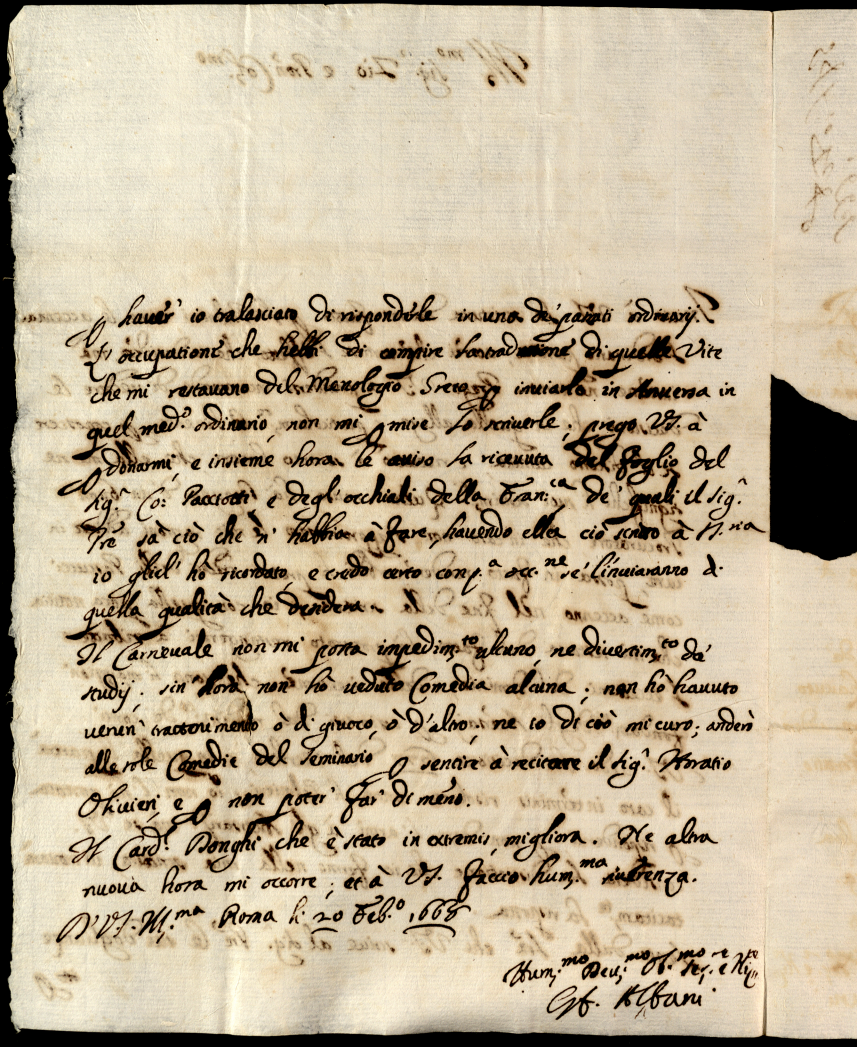 haver' io tralasciato di risponderle in una de' passati ordinarij.
L'occupatione che hebbi di compire la traduttione di quelle Vite
che mi restavano del Menologio Greco inviarle in Anversa in
quel med.º ordinario, non mi permise lo scriverle; prego VS. à
perdonarmi, e insieme hora le aviso la ricevuta del foglio del
Sig.r Co: Pacciotti e degl'occhiali della Fran.ca de' quali il Sig.r
Pre sà ciò che n' habbia à fare, havendo ella ciò scritto à
io gliel' hò ricordato, e credo certo con p.a occ.ne se l'inviaranno di
quella qualità che desidera.
Il Carnevale non mi porta impedim.to alcuno, ne divertim.to da'
studij; sin' hora non hò veduto Comedia alcuna; non hò havuto
verun' trattenimento ò di giuoco, ò d'altro; ne io di ciò mi curo; anderò
alle sole Comedie del Seminario per sentire à recitare il Sig.r Horatio
Olivieri, e per non poter' far' di meno.
Il Card.l Donghi che è stato in extremis, migliora. Ne altra
nuova hora mi occorre; et à VS. faccio hum.ma riverenza.
D. VS. Ill.ma Roma li 20 Feb.o 1668
Hum.mo Dev.mo Ob.mo Ser.re e
Gf. Albani